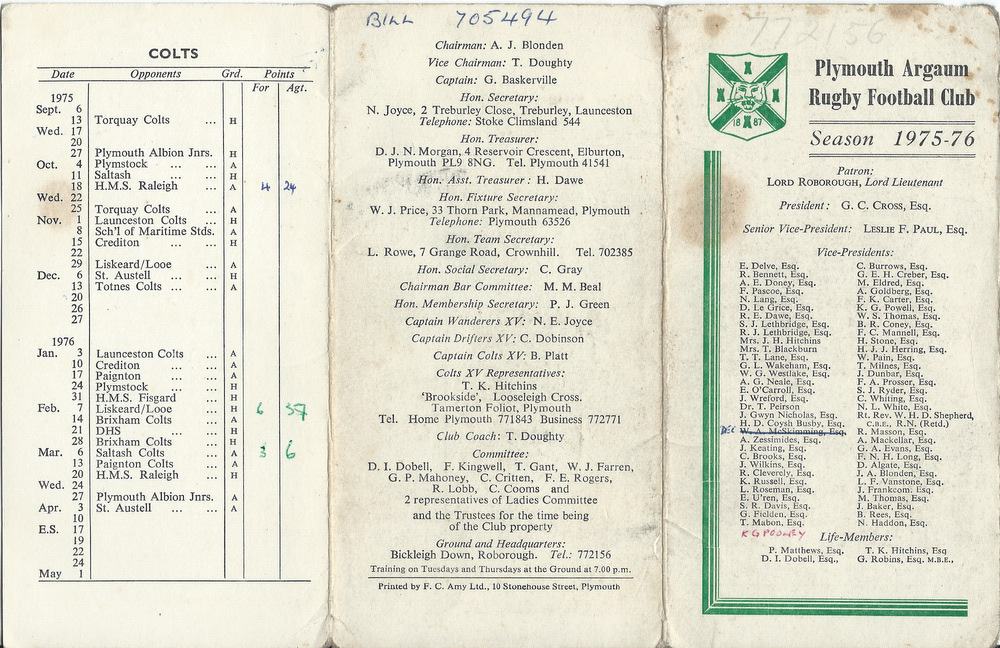 COLTS
Date Opponents Grd. Points
For Agt.
1975
Sept. 6
13 Torquay Colts ... H
Wed. 17
20
27 Plymouth Albion Jnrs. H
Oct. 4 Plymstock ... ... A
11 Saltash ... ... H
18 H.M.S. Raleigh ... A 4 24
Wed. 22
25 Torquay Colts ... A
Nov. 1 Launceston Colts ... H
8 Sch'l of Maritime Stds. A
15 Crediton ... ... H
22
29 Liskeard/Looe ... A
Dec. 6 St. Austell ... ... H
13 Totnes Colts ... ... A
20
26
27
1976
Jan. 3 Launceston Colts ... A
10 Crediton ... ... A
17 Paignton ... ... A
24 Plymstock ... ... H
31 H.M.S. Fisgard ... H
Feb. 7 Liskeard/Looe ... H 6
14 Brixham Colts ... A
21 DHS ... ... H
28 Brixham Colts ... H
Mar. 6 Saltash Colts ... A 3 6
13 Paignton Colts ... A
20 H.M.S. Raleigh ... H
Wed. 24
27 Plymouth Albion Jnrs. A
Apr. 3 St. Austell ... ... A
10
E.S. 17
19
22
24
May 1
BILL 705494
Chairman: A. J. Blonden
Vice Chairman: T. Doughty
Captain: G. Baskerville
Hon. Secretary:
N. Joyce, 2 Treburley Close, Treburley, Launceston
Telephone: Stoke Climsland 544
Hon. Treasurer:
D. J. N. Morgan, 4 Reservoir Crescent, Elburton,
Plymouth PL9 8NG. Tel. Plymouth 41541
Hon. Asst. Treasurer: H. Dawe
Hon. Fixture Secretary:
W. J. Price, 33 Thorn Park, Mannamead, Plymouth
Telephone: Plymouth 63526
Hon. Team Secretary:
L. Rowe, 7 Grange Road, Crownhill. Tel. 702385
Hon. Social Secretary: C. Gray
Chairman Bar Committee: M. M. Beal
Hon. Membership Secretary: P. J. Green
Captain Wanderers XV: N. E. Joyce
Captain Drifters XV: C. Dobinson
Captain Colts XV: B. Platt
Colts XV Representatives:
T. K. Hitchins
'Brookside', Looseleigh Cross.
Tamerton Foliot, Plymouth
Tel. Home Plymouth 771843 Business 772771
Club Coach: T. Doughty
Committee:
D. I. Dobell, F. Kingwell, T. Gant, W. J. Farren,
G. P. Mahoney, C. Critten, F. E. Rogers,
R. Lobb, C. Cooms and
2 representatives of Ladies Committee
and the Trustees for the time being
of the Club property
Ground and Headquarters:
Bickleigh Down, Roborough. Tel.: 772156
Training on Tuesdays and Thursdays at the Ground at 7.00 p.m.
Printed by F. C. Amy Ltd., 10 Stonehouse Street, Plymouth
772156
1887
Plymouth Argaum
Rugby Football Club
Season 1975-76
Patron:
LORD ROBOROUGH, Lord Lieutenant
President: G. C. CROSS, Esq.
Senior Vice-President: LESLIE F. PAUL, Esq.
Vice-Presidents:
E. Delve, Esq. C. Burrows, Esq.
R. Bennett, Esq. G. E. H. Creber, Esq.
A. E. Doney, Esq. M. Eldred, Esq.
F. Pascoe, Esq. A. Goldberg, Esq.
N. Lang, Esq. F. K. Carter, Esq.
D. Le Grice, Esq. K. G. Powell, Esq.
R. E. Dawe, Esq. W. S. Thomas, Esq.
S. J. Lethbridge, Esq. B. R. Coney, Esq.
R. J. Lethbridge, Esq. F. C. Mannell, Esq.
Mrs. J. H. Hitchins H. Stone, Esq.
Mrs. T. Blackburn H. J. J. Herring, Esq.
T. T. Lane, Esq. W. Pain, Esq.
G. L. Wakeham, Esq. T. Milnes, Esq.
W. G. Westlake, Esq. J. Dunbar, Esq.
A. G. Neale, Esq. F. A. Prosser, Esq.
E. O'Carroll, Esq. S. J. Ryder, Esq.
J. Wreford, Esq. C. Whiting, Esq.
Dr. T. Peirson N. L. White, Esq.
J. Gwyn Nicholas, Esq. Rt. Rev. W. H. D. Shepherd,
H. D. Coysh Busby, Esq. C.B.E., R.N. (Retd.)
DEC W. A. McSkimming, Esq. R. Masson, Esq.
A. Zessimides, Esq. A. Mackellar, Esq.
J. Keating, Esq. G. A. Evans, Esq.
C. Brooks, Esq. F. N. H. Long, Esq.
J. Wilkins, Esq. D. Algate, Esq.
R. Cleverly, Esq. J. A. Blonden, Esq.
K. Russell, Esq. L. F. Vanstone, Esq.
L. Roseman, Esq. J. Frankcom, Esq.
E. U'ren, Esq. M. Thomas, Esq.
S. R. Davis, Esq. J. Baker, Esq.
G. Fielden, Esq. B. Rees, Esq.
T. Mabon, Esq. N. Haddon, Esq.
K G POOLEY
Life-Members:
P. Matthews, Esq. T. K. Hitchins, Esq
D. I. Dobell, Esq., G. Robins, Esq. M.B.E.,